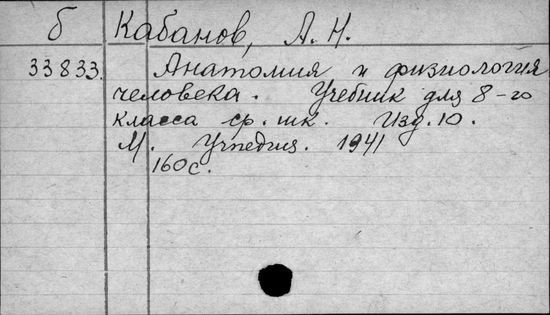 б Кабанов, А. Н.
33833. Анатомия и физиология
человека. Учебник для 8-го
класса ср. шк. Изд. 10.
М. Учпедгиз. 1941
160 с.